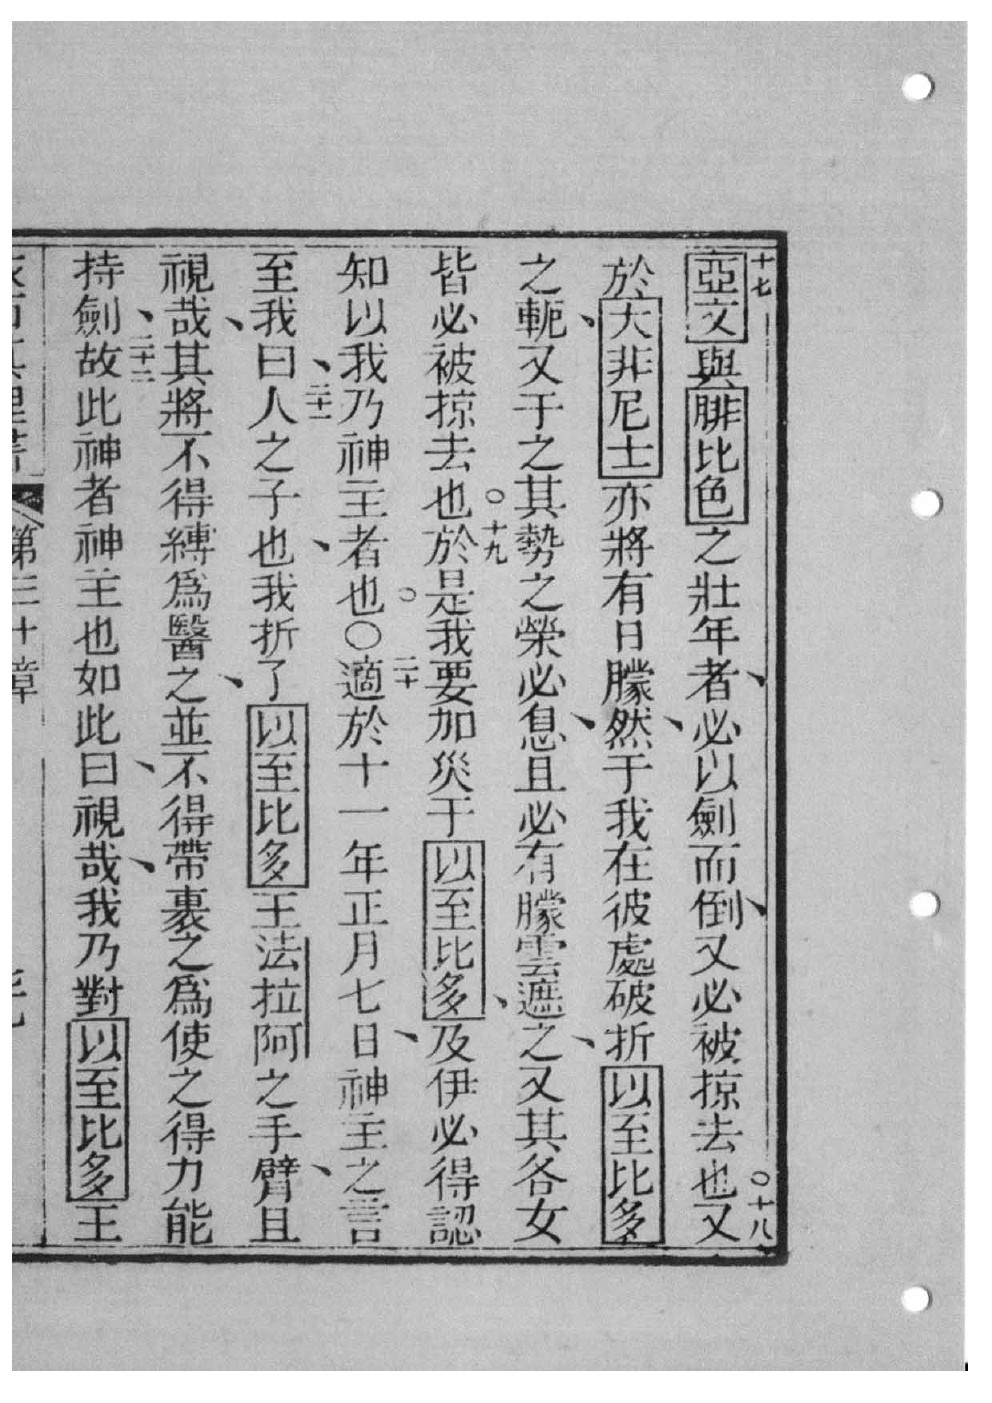 十七亞文與腓比色之壯年者、必以劍而倒、又必被掠去也。十八又
於大非尼士亦將有日朦然、于我在彼處破折以至比多
之軛、又于之其勢之榮必息、且必有朦雲遮之、又其各女
皆必被掠去也。十九於是我要加災于以至比多、及伊必得認
知以我乃神主者也。〇二十適於十一年正月七日、神主之言
至我曰、二十一人之子也、我折了以至比多王法拉阿之手臂、且
視哉、其將不得縛為醫之、並不得帶裹之為使之得力能
持劍、二十二故此神者神主也如此曰、視哉、我乃對以至比多王
第三十章